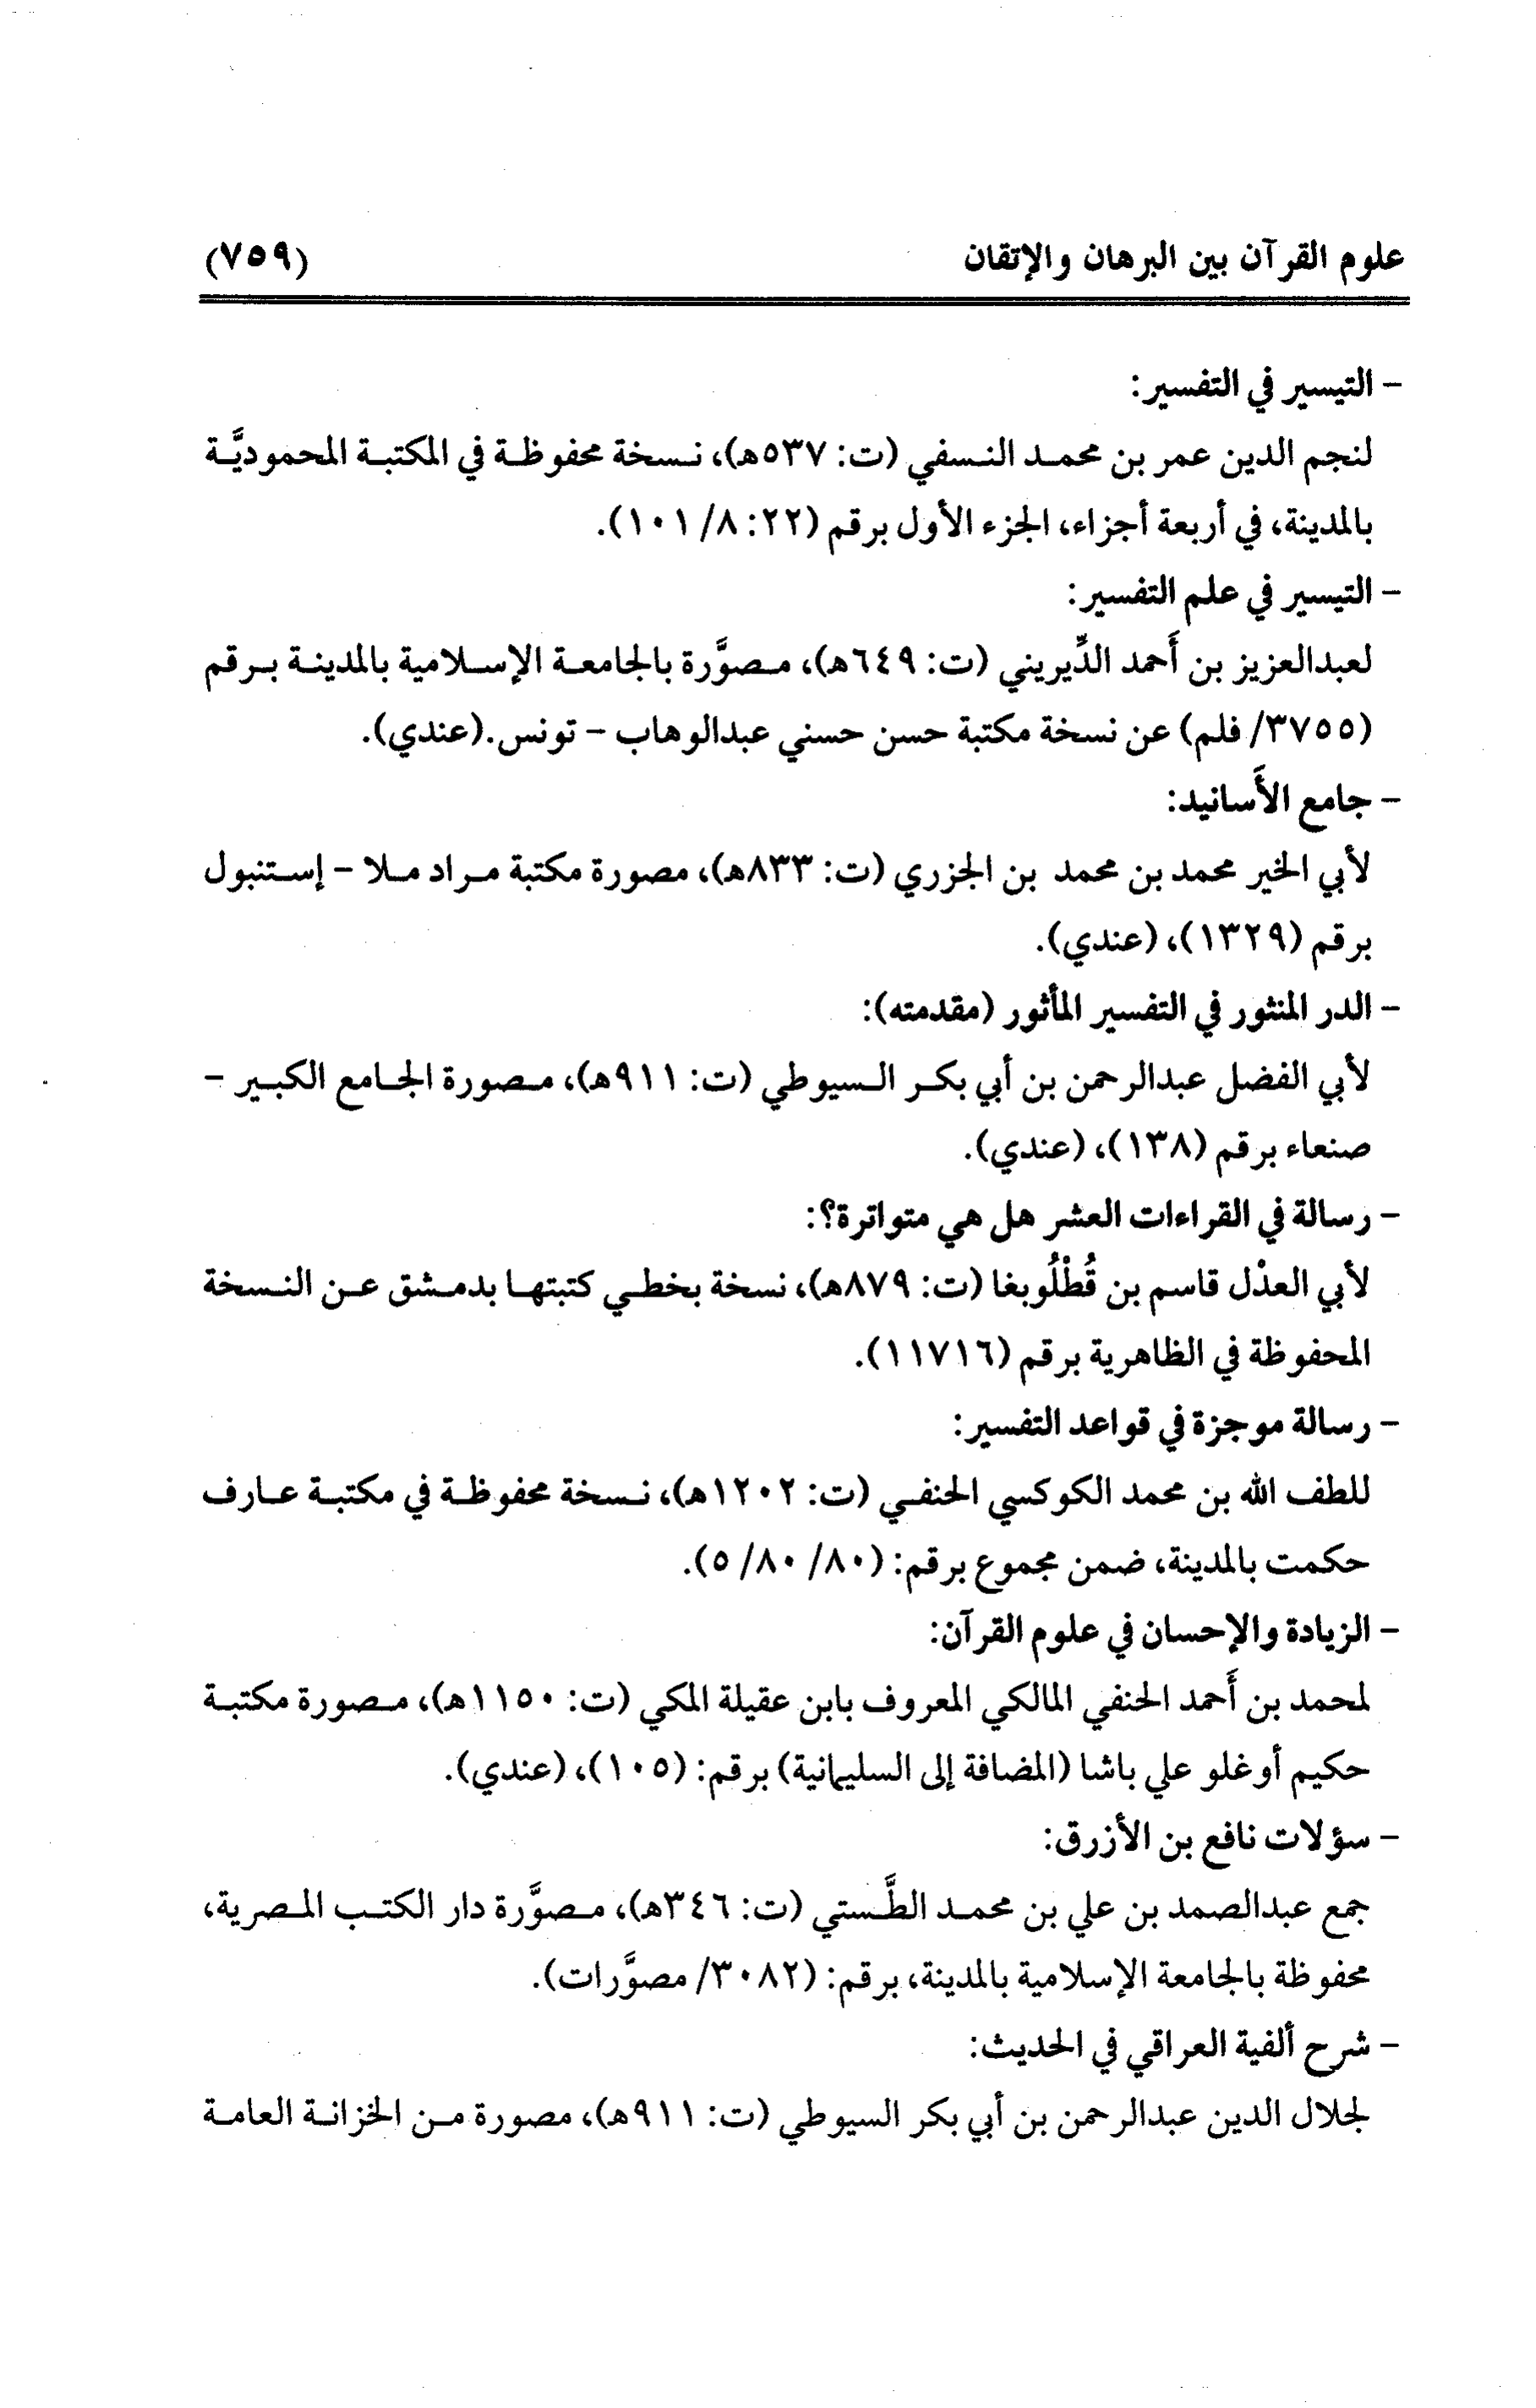 علوم القرآن بين البرهان والإتقان (٧٥٩)
- التيسير في التفسير:
لنجم الدين عمر بن محمد النسفي (ت: ٥٣٧هـ)، نسخة محفوظة في المكتبة المحموديَّة
بالمدينة، في أربعة أجزاء، الجزء الأول برقم (٢٢: ٨/ ١٠١).
- التيسير في علم التفسير:
لعبدالعزيز بن أَحمد الدِّيريني (ت: ٦٤٩هـ)، مصوَّرة بالجامعة الإسلامية بالمدينة برقم
(٣٧٥٥/ فلم) عن نسخة مكتبة حسن حسني عبدالوهاب - تونس.(عندي).
- جامع الأَسانيد:
لأبي الخير محمد بن محمد بن الجزري (ت: ٨٣٣هـ)، مصورة مكتبة مراد ملا - إستنبول
برقم (١٣٢٩)، (عندي).
- الدر المنثور في التفسير المأثور (مقدمته):
لأبي الفضل عبدالرحمن بن أبي بكر السيوطي (ت: ٩١١هـ)، مصورة الجامع الكبير -
صنعاء برقم (١٣٨)، (عندي).
- رسالة في القراءات العشر هل هي متواترة؟:
لأبي العدْل قاسم بن قُطْلُوبغا (ت: ٨٧٩هـ)، نسخة بخطي كتبتها بدمشق عن النسخة
المحفوظة في الظاهرية برقم (١١٧١٦).
- رسالة موجزة في قواعد التفسير:
للطف الله بن محمد الكوكسي الحنفي (ت: ١٢٠٢هـ)، نسخة محفوظة في مكتبة عارف
حكمت بالمدينة، ضمن مجموع برقم: (٨٠/ ٨٠/ ٥).
- الزيادة والإحسان في علوم القرآن:
لمحمد بن أَحمد الحنفي المالكي المعروف بابن عقيلة المكي (ت: ١١٥٠هـ)، مصورة مكتبة
حكيم أوغلو علي باشا (المضافة إلى السليمانية) برقم: (١٠٥)، (عندي).
- سؤلات نافع بن الأزرق:
جمع عبدالصمد بن علي بن محمد الطَّستي (ت: ٣٤٦هـ)، مصوَّرة دار الكتب المصرية،
محفوظة بالجامعة الإسلامية بالمدينة، برقم: (٣٠٨٢/ مصوَّرات).
- شرح ألفية العراقي في الحديث:
لجلال الدين عبدالرحمن بن أبي بكر السيوطي (ت: ٩١١هـ)، مصورة من الخزانة العامة